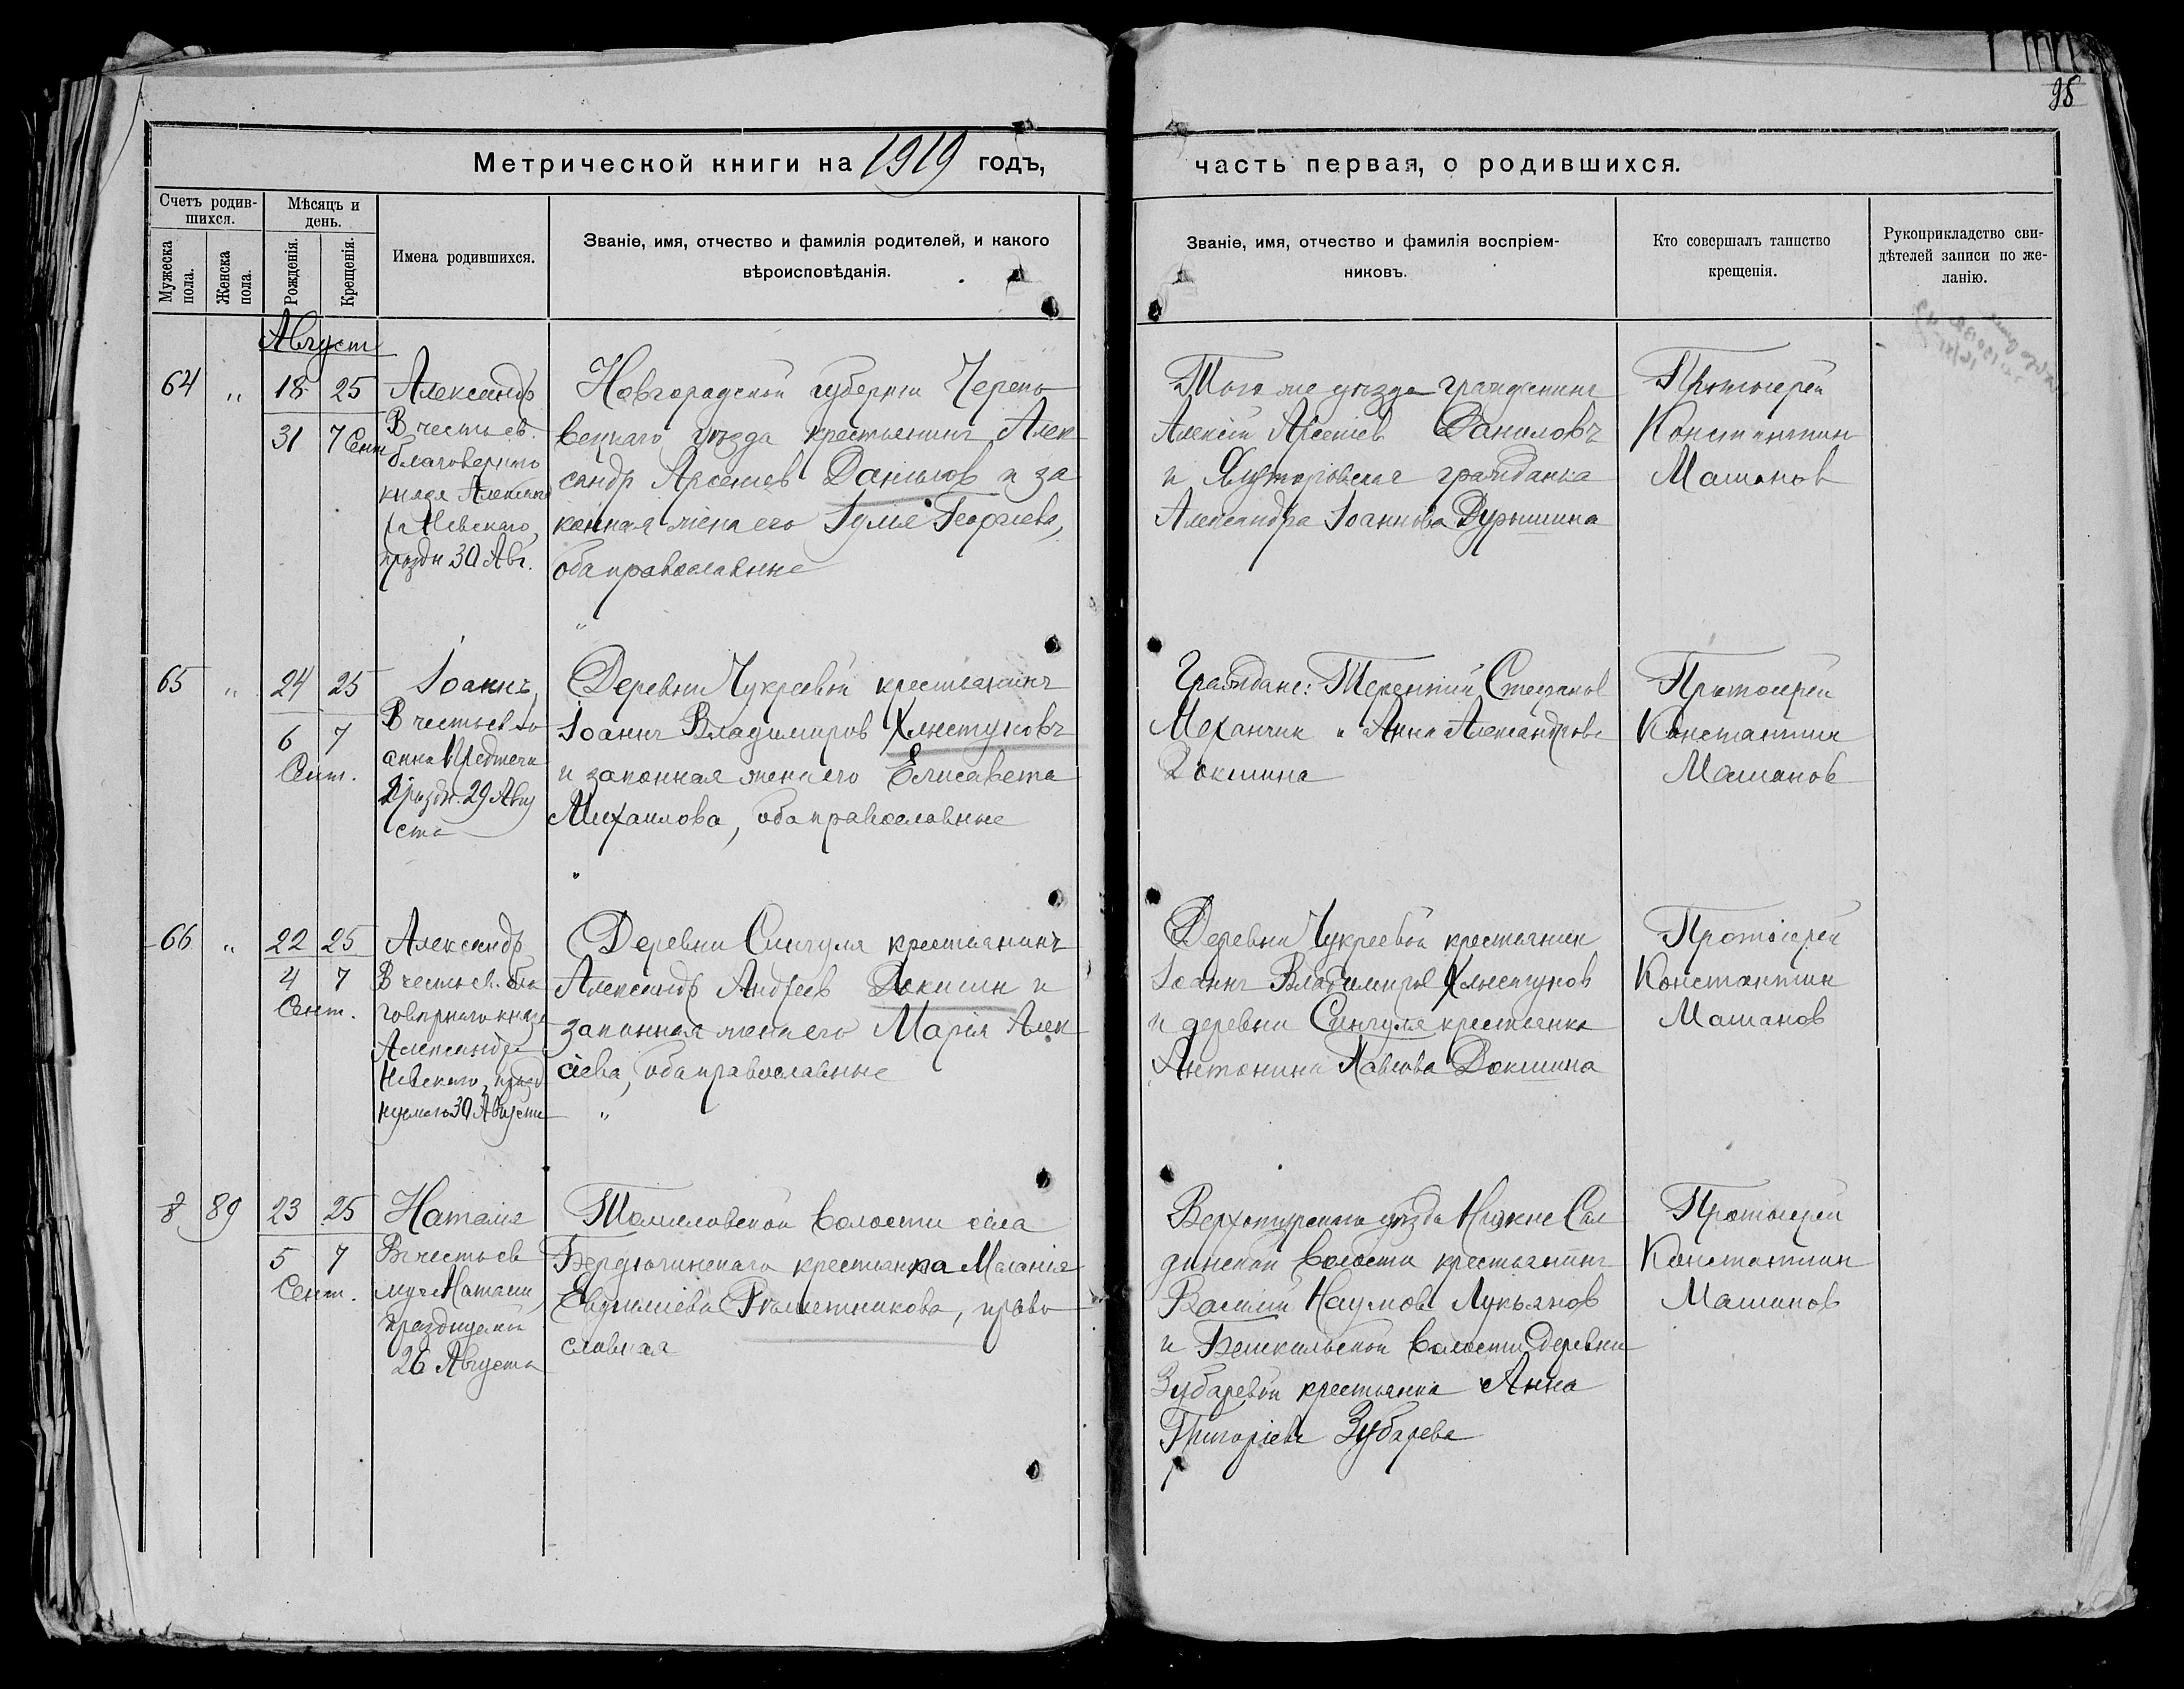 98
Метрической книги на 1919 годъ,
часть первая, о родившихся.
Счетъ родив-
шихся.
Мужеска пола.
Женска пола.
Мѣсяцъ и
день.
Рожденія.
Крещенія.
Имена родившихся.
Званіе, имя, отчество и фамилія родителей, и какого
вѣроисповѣданія.
Званіе, имя, отчество и фамилія воспріем-
никовъ.
Кто совершалъ таинство
крещенія.
Рукоприкладство сви-
дѣтелей записи по же-
ланію.
Август
64 " 18 25
31 7 Сент
Александръ
В честь св.
благоверного
князя Александ
ра Невскаго,
праздн 30 Авг.
Новгородской губернии Черепо
вецкаго уезда крестьянинъ Алек
сандр Арсениев Данилов и за
конная жена его Гуліе Георгиева,
оба православные
Того же уезда гражданинъ
Алексѣй Арсениев Даниловъ
и Ялуторовская гражданка
Александра Іоаннова Дурышина
Протоіерей
Константин
Машанов
65 " 24 25
6 7
Сент.
Іоаннъ,
В честь св Іо
анна Предтечи
Праздн. 29 Авгу
ста
Деревни Чукреевой крестьянинъ
Іоаннъ Владимиров Хлыстуновъ
и законная жена его Елисавета
Михаилова, оба православные
Граждане: Терентий Степанов
Механчик и Анна Александрова
Докшина
Протоіерей
Константин
Машанов
66 " 22 25
4 7
Сент.
Александр
В честь св. бла
говернаго князя
Александра
Невскаго, празд
нуемаго 30 Августа
Деревни Сингуля крестьянинъ
Александр Андреев Докшин и
законная жена его Марія Алек
сіева, оба православные
Деревни Чукреевой крестьянин
Іоаннъ Владимиров Хлыстунов
и деревни Сингуля крестьянка
Антонина Павлова Докшина
Протоіерей
Константин
Машанов
89 23 25
5 7
Сент.
Наталія
В честь св
муч Наталіи
празднуемой
26 Августа
Томиловской волости села
Бердюгинскаго крестьянка Маланія
Евфиміева Решетникова, право
славная
Верхотурскаго уезда Нижне Сал
динской волости крестьянинъ
Василій Наумов Лукьянов
и Бешкильской волости деревни
Зубаревой крестьянка Анна
Григоріева Зубарева
Протоіерей
Константин
Машанов